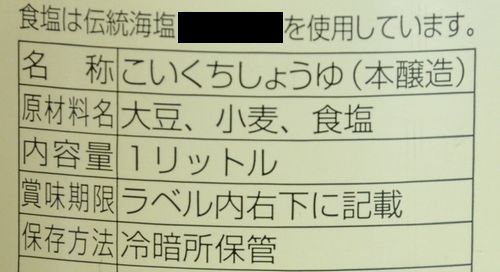 食塩は伝統海塩 を使用しています。
名称 こいくちしょうゆ(本醸造)
原材料名 大豆、小麦、食塩
内容量 1リットル
賞味期限 ラベル内右下に記載
保存方法 冷暗所保管